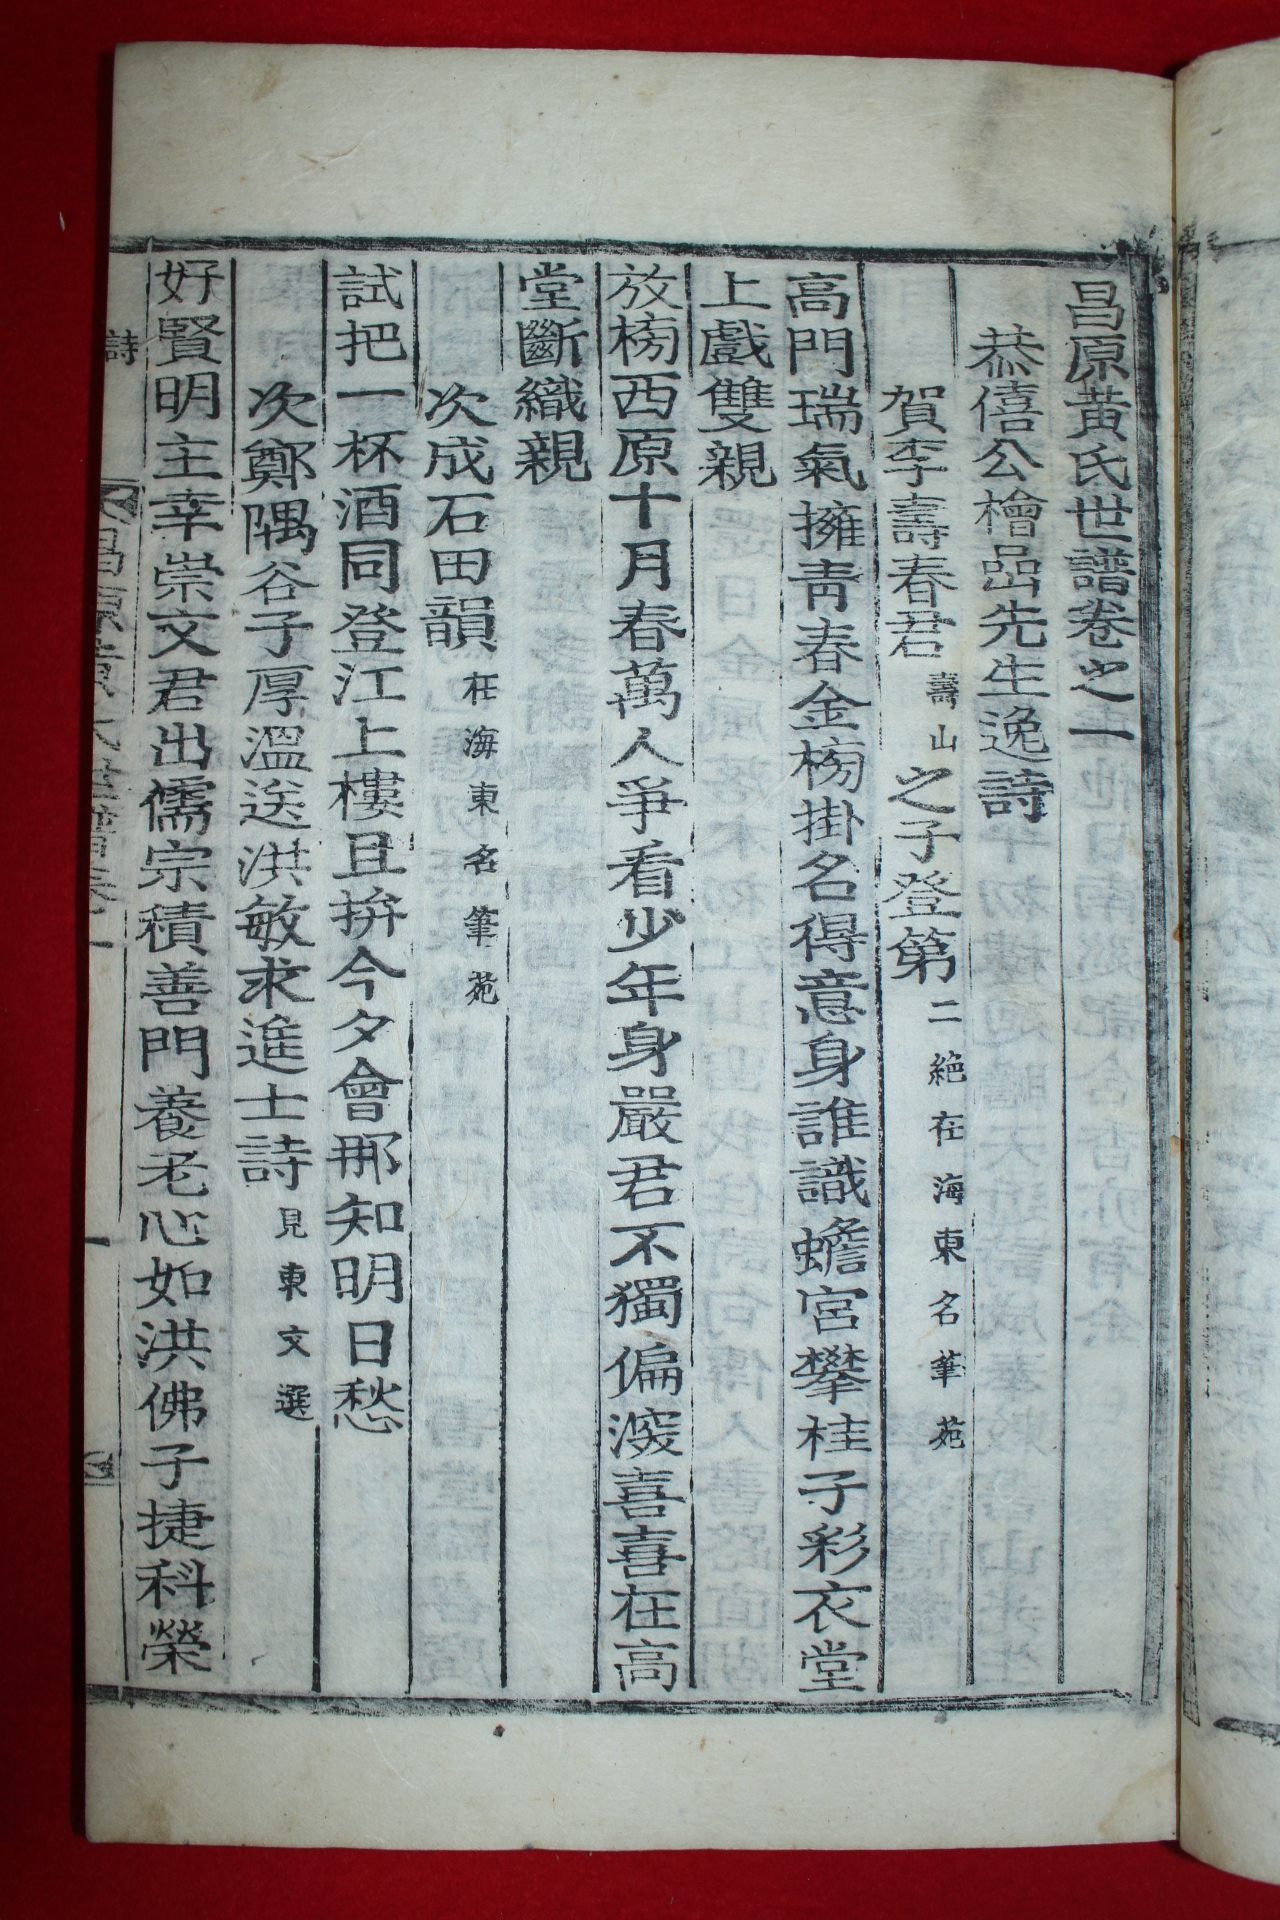 昌原黄氏世譜卷之一
恭僖公檜嵒先生逸詩
賀李壽春君壽山之子登第二絶在海東名筆苑
高門瑞氣擁靑春金榜掛名得意身誰識蟾宮攀桂子彩衣堂
上戲雙親
放榜西原十月春萬人爭看少年身嚴君不獨偏深喜喜在高
堂斷織親
次成石田韻在海東名筆苑
試把一杯酒同登江上樓且拚今夕會那知明日愁
次鄭隅谷子厚溫送洪敏求進士詩見東文選
好賢明主幸崇文君出儒宗積善門養老心如洪佛子捷科榮
詩 昌原黄氏世譜卷之一 一